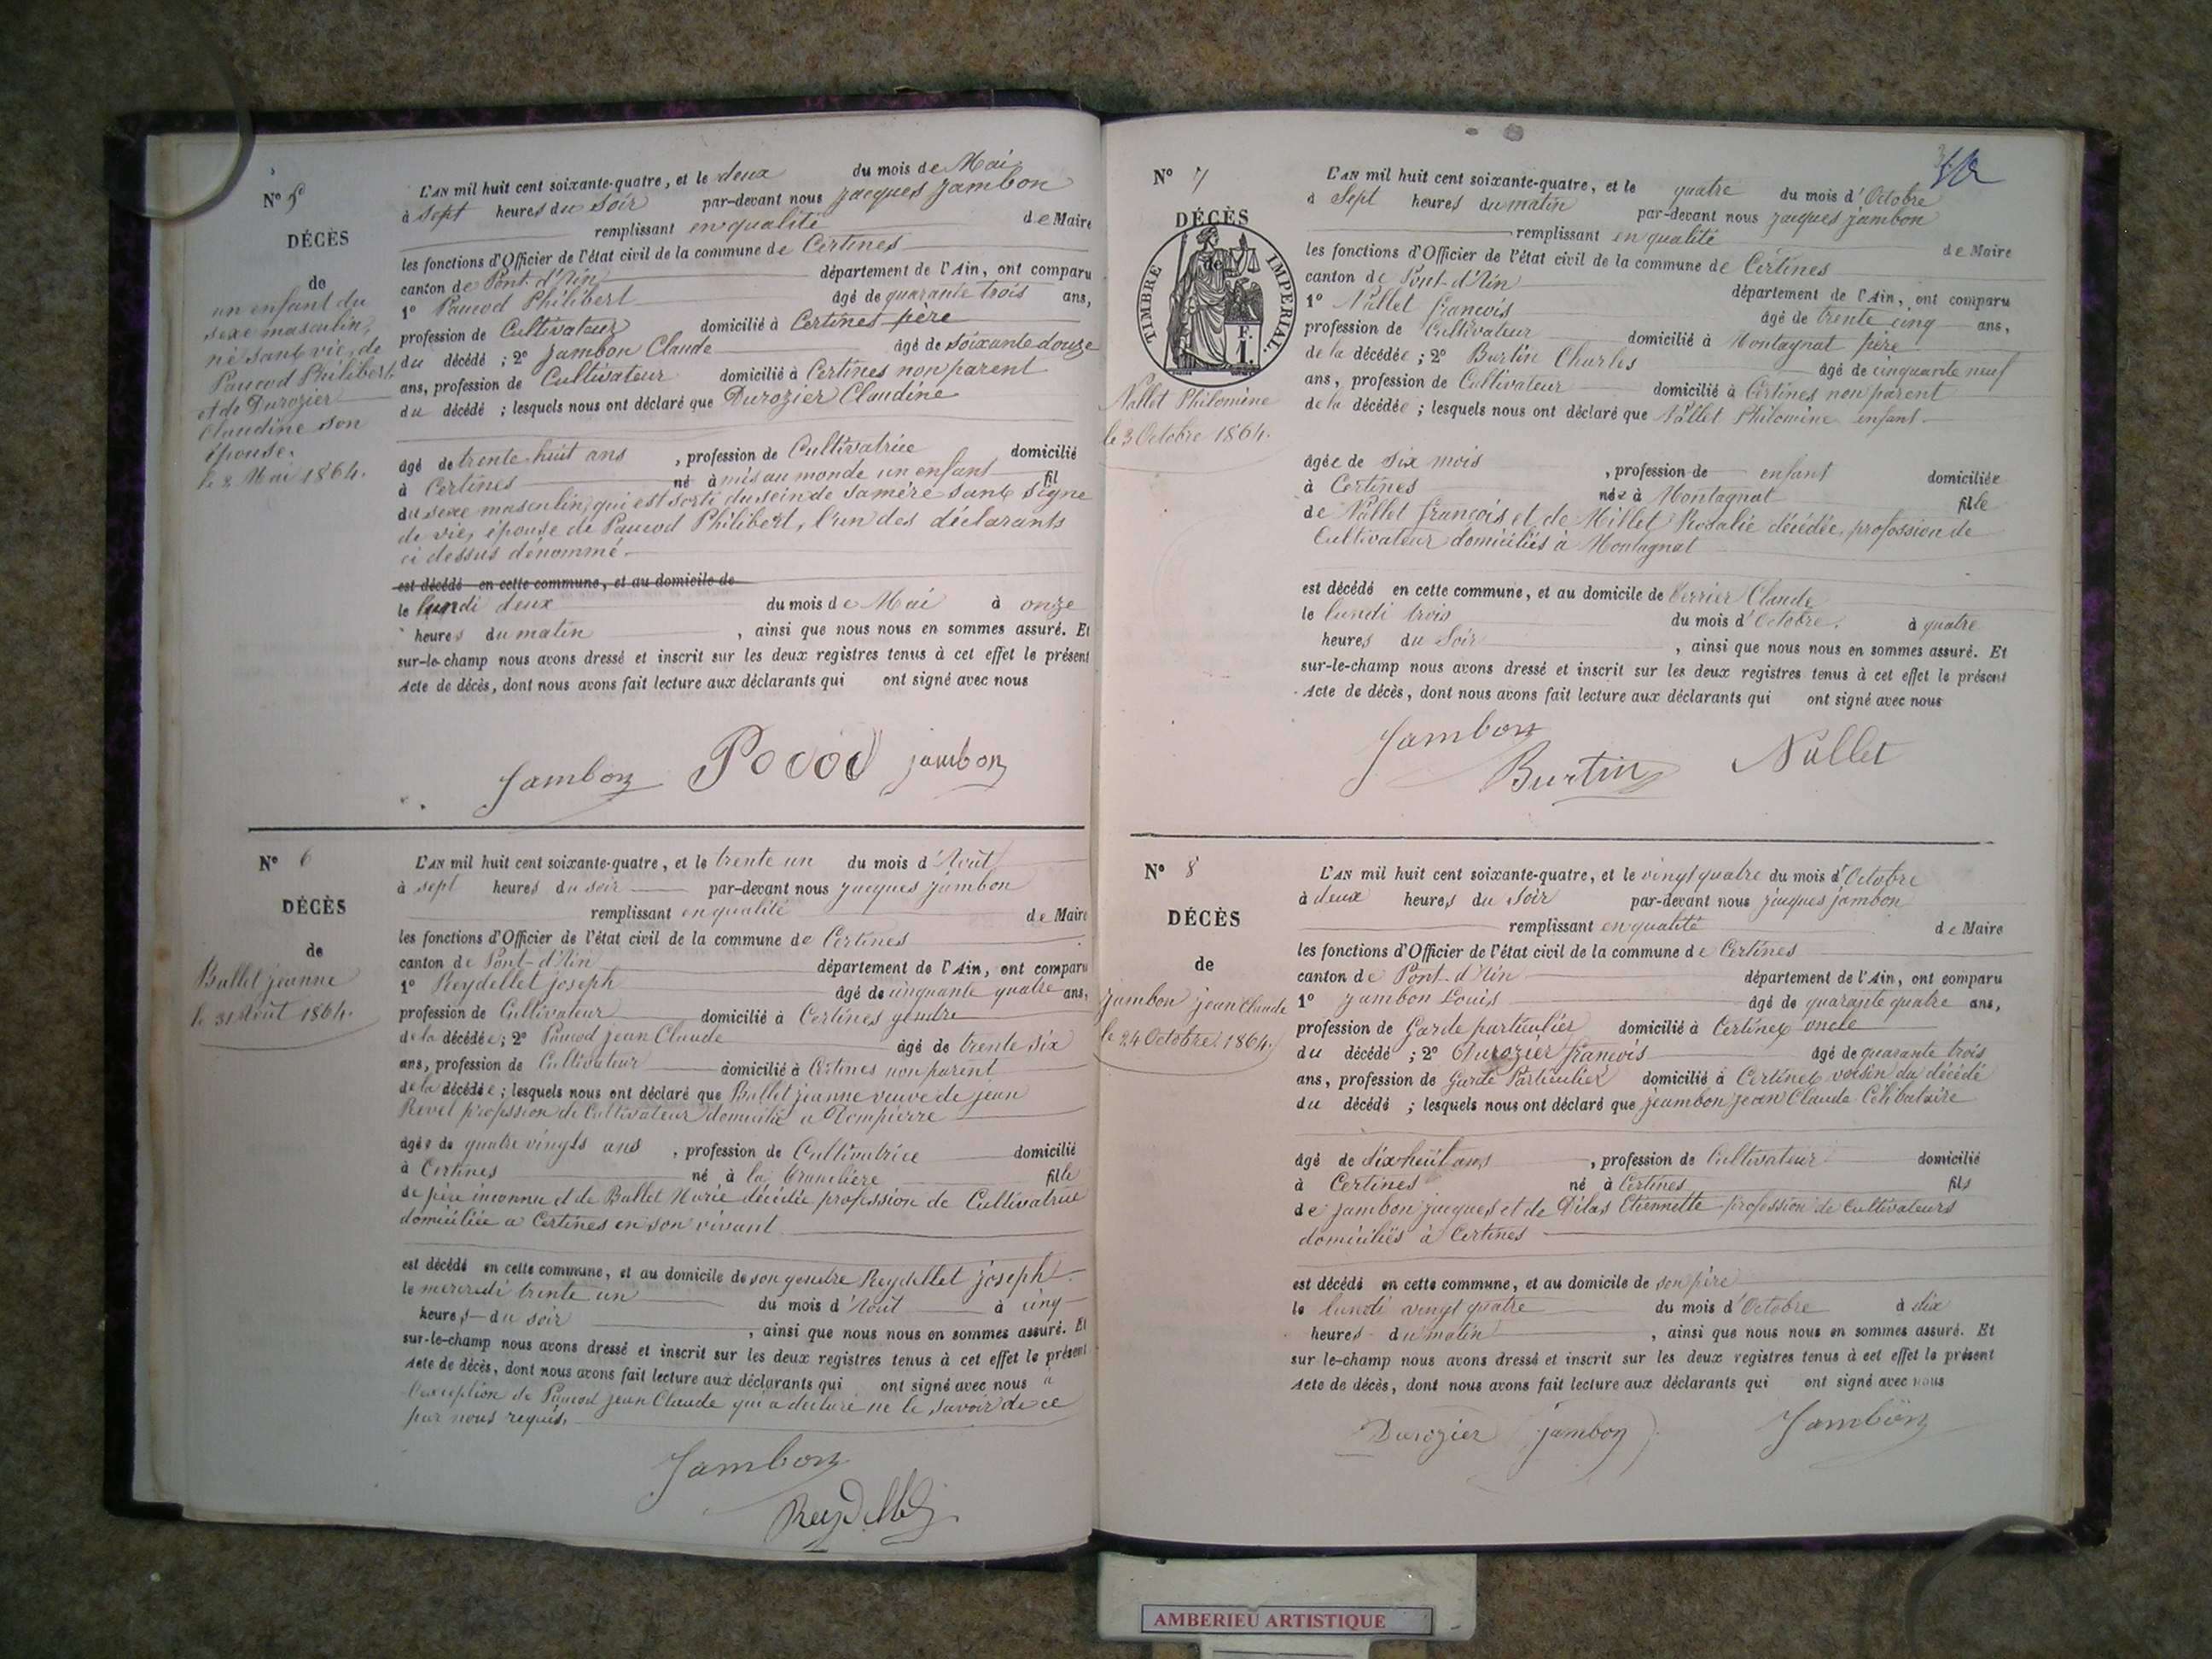 N° 5
DÉCÈS
de
un enfant du
sexe masculin,
né sans vie, de
Paucod Philibert
et de Durozier
Claudine son
épouse.
le 2 Mai 1864.
L'AN mil huit cent soixante-quatre, et le deux du mois de Mai
à sept heures du Soir par-devant nous jacques jambon
remplissant en qualité de Maire
les fonctions d'Officier de l'état civil de la commune de Certines
canton de Pont-d'Ain département de l'Ain, ont comparu
1° Paucod Philibert âgé de quarante trois ans,
profession de Cultivateur domicilié à Certines père
du décédé ; 2° Jambon Claude âgé de soixante douze
ans, profession de Cultivateur domicilié à Certines non parent
du décédé ; lesquels nous ont déclaré que Durozier Claudine
âgé de trente huit ans , profession de Cultivatrice domicilié
à Certines né à mis au monde un enfant fil
du sexe masculin, qui est sorti du sein de sa mère sans signe
de vie, épouse de Paucod Philibert, l'un des déclarants
ci dessus dénommé
est décédé en cette commune, et au domicile de
le lundi deux du mois de Mai à onze
heures du matin , ainsi que nous nous en sommes assuré. Et
sur-le-champ nous avons dressé et inscrit sur les deux registres tenus à cet effet le présent
Acte de décès, dont nous avons fait lecture aux déclarants qui ont signé avec nous
Jambon Pocod jambon
N° 6
DÉCÈS
de
Ballet jeanne
le 31 Août 1864.
L'AN mil huit cent soixante-quatre, et le trente un du mois d'Août
à sept heures du soir par-devant nous jacques jambon
remplissant en qualité de Maire
les fonctions d'Officier de l'état civil de la commune de Certines
canton de Pont-d'Ain département de l'Ain, ont comparu
1° Reydellet joseph âgé de cinquante quatre ans,
profession de Cultivateur domicilié à Certines gendre
de la décédée ; 2° Paucod jean Claude âgé de trente six
ans, profession de Cultivateur domicilié à Certines non parent
de la décédée ; lesquels nous ont déclaré que Ballet jeanne veuve de jean
Revel profession de Cultivateur domicilié a Dompierre
âgée de quatre vingts ans , profession de Cultivatrice domicilié
à Certines né à la Tranclière fille
de père inconnu et de Ballet Marie décédée profession de Cultivatrice
domiciliée a Certines en son vivant
est décédé en cette commune, et au domicile de son gendre Reydellet joseph
le mercredi trente un du mois d'Août à cinq
heures du soir , ainsi que nous nous en sommes assuré. Et
sur-le-champ nous avons dressé et inscrit sur les deux registres tenus à cet effet le présent
Acte de décès, dont nous avons fait lecture aux déclarants qui ont signé avec nous a
l'exception de Paucod jean Claude qui a déclaré ne le savoir de ce
par nous requis.
Jambon
Reydellet
N° 7
DÉCÈS
de
TIMBRE IMPERIAL.
F.
1.
Nallet Philomène
le 3 Octobre 1864.
L'AN mil huit cent soixante-quatre, et le quatre du mois d'Octobre
à Sept heures du matin par-devant nous jacques jambon
remplissant en qualité de Maire
les fonctions d'Officier de l'état civil de la commune de Certines
canton de Pont-d'Ain département de l'Ain, ont comparu
1° Nallet françois âgé de trente cinq ans,
profession de Cultivateur domicilié à Montagnat père
de la décédée ; 2° Burtin Charles âgé de cinquante neuf
ans, profession de Cultivateur domicilié à Certines non parent
de la décédée ; lesquels nous ont déclaré que Nallet Philomène enfant
âgée de six mois , profession de enfant domiciliée
à Certines née à Montagnat fille
de Nallet françois et de Millet Rosalie décédée, profession de
Cultivateur domiciliés à Montagnat
est décédé en cette commune, et au domicile de Perrier Claude
le lundi trois du mois d'Octobre. à quatre
heures du Soir , ainsi que nous nous en sommes assuré. Et
sur-le-champ nous avons dressé et inscrit sur les deux registres tenus à cet effet le présent
Acte de décès, dont nous avons fait lecture aux déclarants qui ont signé avec nous
Jambon
Burtin Nallet
N° 8
DÉCÈS
de
jambon jean Claude
le 24 Octobre 1864.
L'AN mil huit cent soixante-quatre, et le vingt quatre du mois d'Octobre
à deux heures du Soir par-devant nous jacques jambon
remplissant en qualité de Maire
les fonctions d'Officier de l'état civil de la commune de Certines
canton de Pont-d'Ain département de l'Ain, ont comparu
1° jambon Louis âgé de quarante quatre ans,
profession de Garde particulier domicilié à Certines oncle
du décédé ; 2° Durozier françois âgé de quarante trois
ans, profession de Garde Particulier domicilié à Certines voisin du décédé
du décédé ; lesquels nous ont déclaré que jeambon jean Claude Célibataire
âgé de dix huit ans , profession de Cultivateur domicilié
à Certines né à Certines fils
de jambon jacques et de Dilas Etiennette profession de Cultivateurs
domiciliés à Certines
est décédé en cette commune, et au domicile de son père
le lundi vingt quatre du mois d'Octobre à dix
heures du matin , ainsi que nous nous en sommes assuré. Et
sur-le-champ nous avons dressé et inscrit sur les deux registres tenus à cet effet le présent
Acte de décès, dont nous avons fait lecture aux déclarants qui ont signé avec nous
Durozier jambon Jambon
AMBERIEU ARTISTIQUE